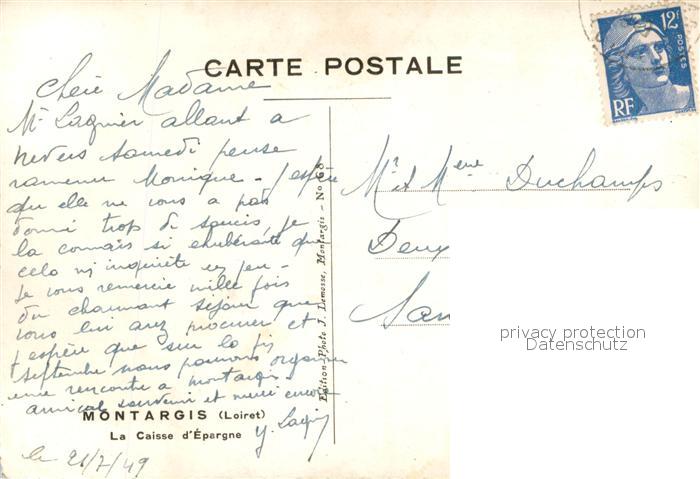 CARTE POSTALE
12F
POSTES
RF
Chère Madame
Mr Laquier allant a
Nevers Samedi pense
ramener Monique - J'espère
qu'elle ne vous a pas
donné trop de soucis, je
la connais si exubérante que
cela m'inquiète un peu -
Je vous remercie mille fois
du charmant séjour que
vous lui avez procurer et
j'espère que sur la fin
Septembre nous pourrons organiser
une rencontre a montargis -
amical souvenir et merci encore
MONTARGIS (Loiret)
La Caisse d'Épargne
le 21/7/49
Edition-Photo J. Lemosse, Montargis - No 68
Mr et Mme Duchamps
privacy protection
Datenschutz